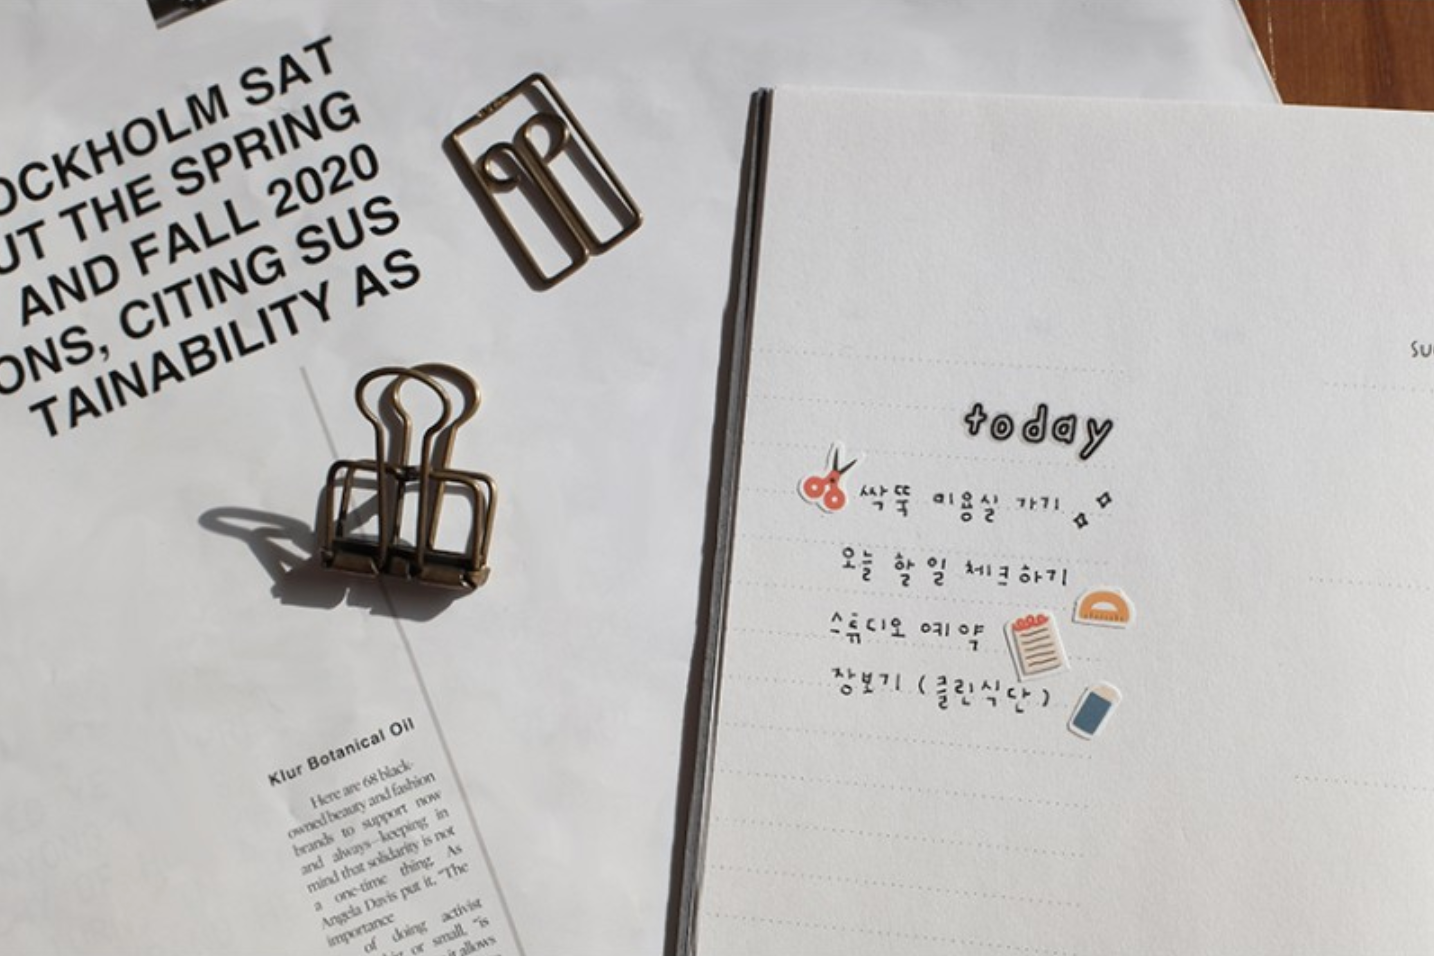 OCKHOLM SAT
UT THE SPRING
AND FALL 2020
ONS, CITING SUS
TAINABILITY AS
Klur Botanical Oil
Here are 68 black-
owned beauty and fashion
brands to support now
and always—keeping in
mind that solidarity is not
a one-time thing. As
Angela Davis put it, “The
importance
of doing activist
or small, “is
it allows
today
싹뚝 미용실 가기
오늘 할 일 체크하기
스튜디오 예약
장보기 (클린식단)
SU